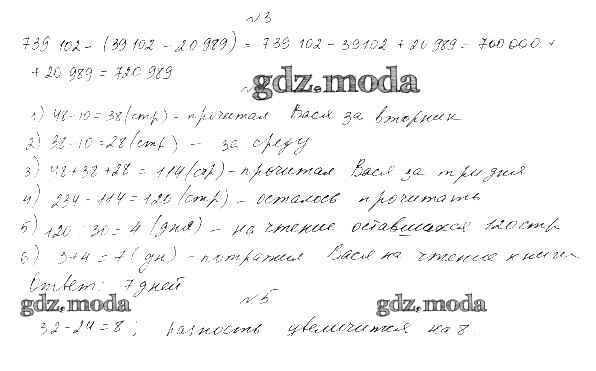 №3
739 102 - (39 102 - 20 989) = 739 102 - 39102 + 20 989 = 700 000 +
+ 20 989 = 720 989
gdz.moda
1) 48-10 = 38 (стр) - прочитал Вася за вторник
2) 38-10 = 28 (стр) - за среду
3) 48+38+28 = 114 (стр) - прочитал Вася за три дня
4) 234 - 114 = 120 (стр) - осталось прочитать
5) 120 : 30 = 4 (дня) - на чтение оставшихся 120 стр
6) 3+4 = 7 (дн) - потратил Вася на чтение книги
Ответ: 7 дней
№5
gdz.moda gdz.moda
32-24 = 8; разность увеличится на 8